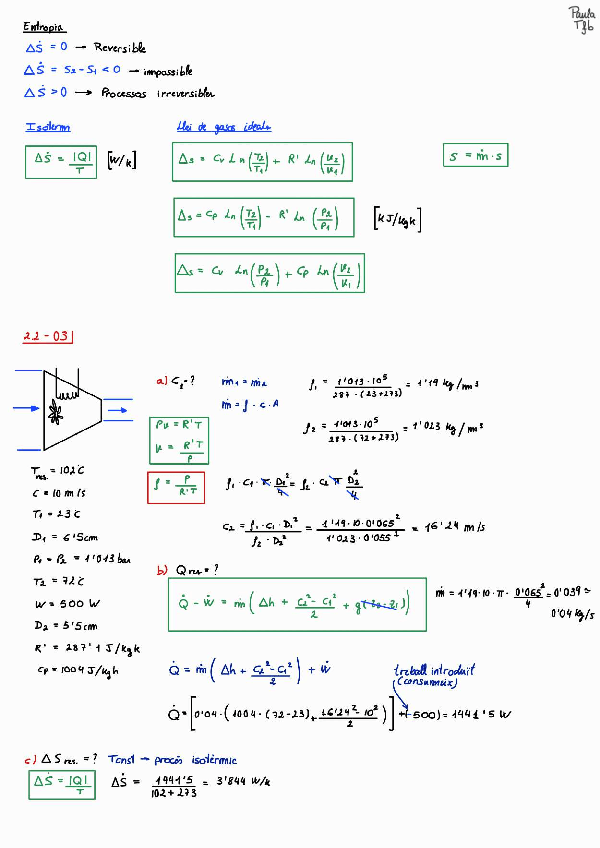 Paula
Tfb
Entropia
ΔṠ = 0 → Reversible
ΔṠ = S2 - S1 < 0 → impossible
ΔṠ > 0 → Processos irreversibles
Isoterm
Llei de gasos ideals
ΔṠ = |Q|/T [W/k]
Δs = Cv Ln(T2/T1) + R' Ln(v2/v1)
S = ṁ · s
Δs = Cp Ln(T2/T1) - R' Ln(P2/P1) [kJ/kg k]
Δs = Cv Ln(P2/P1) + Cp Ln(v2/v1)
2.2 - 03
Tres. = 102°C
C = 10 m/s
T1 = 23°C
D1 = 6'5cm
P1 = P2 = 1'013 bar
T2 = 72°C
W = 500 W
D2 = 5'5cm
R' = 287'1 J/kg k
Cp = 1004 J/kg k
a) C2 = ? ṁ1 = ṁ2
ṁ = ρ · c · A
ρ1 = 1'013·10^5 / 287·(23+273) = 1'19 kg/m³
ρ2 = 1'013·10^5 / 287·(72+273) = 1'023 kg/m³
Pv = R'T
v = R'T/P
ρ = P/R'T
ρ1 · C1 · π D1²/4 = ρ2 · C2 π D2²/4
C2 = ρ1·C1·D1² / ρ2·D2² = 1'19·10·0'065² / 1'023·0'055² = 16'24 m/s
b) Qres = ?
Q̇ - Ẇ = ṁ(Δh + C2² - C1²/2 + g(z2-z1))
ṁ = 1'19·10·π·0'065²/4 = 0'039 ≈
0'04 kg/s
Q̇ = ṁ(Δh + C2² - C1²/2) + Ẇ
treball introduït
(consumeix)
Q̇ = [0'04·(1004·(72-23) + 16'24² - 10²/2)] + (-500) = 1441'5 W
c) ΔSres. = ? Tcnst → procés isotèrmic
ΔṠ = |Q|/T
ΔṠ = 1441'5 / 102+273 = 3'844 W/k